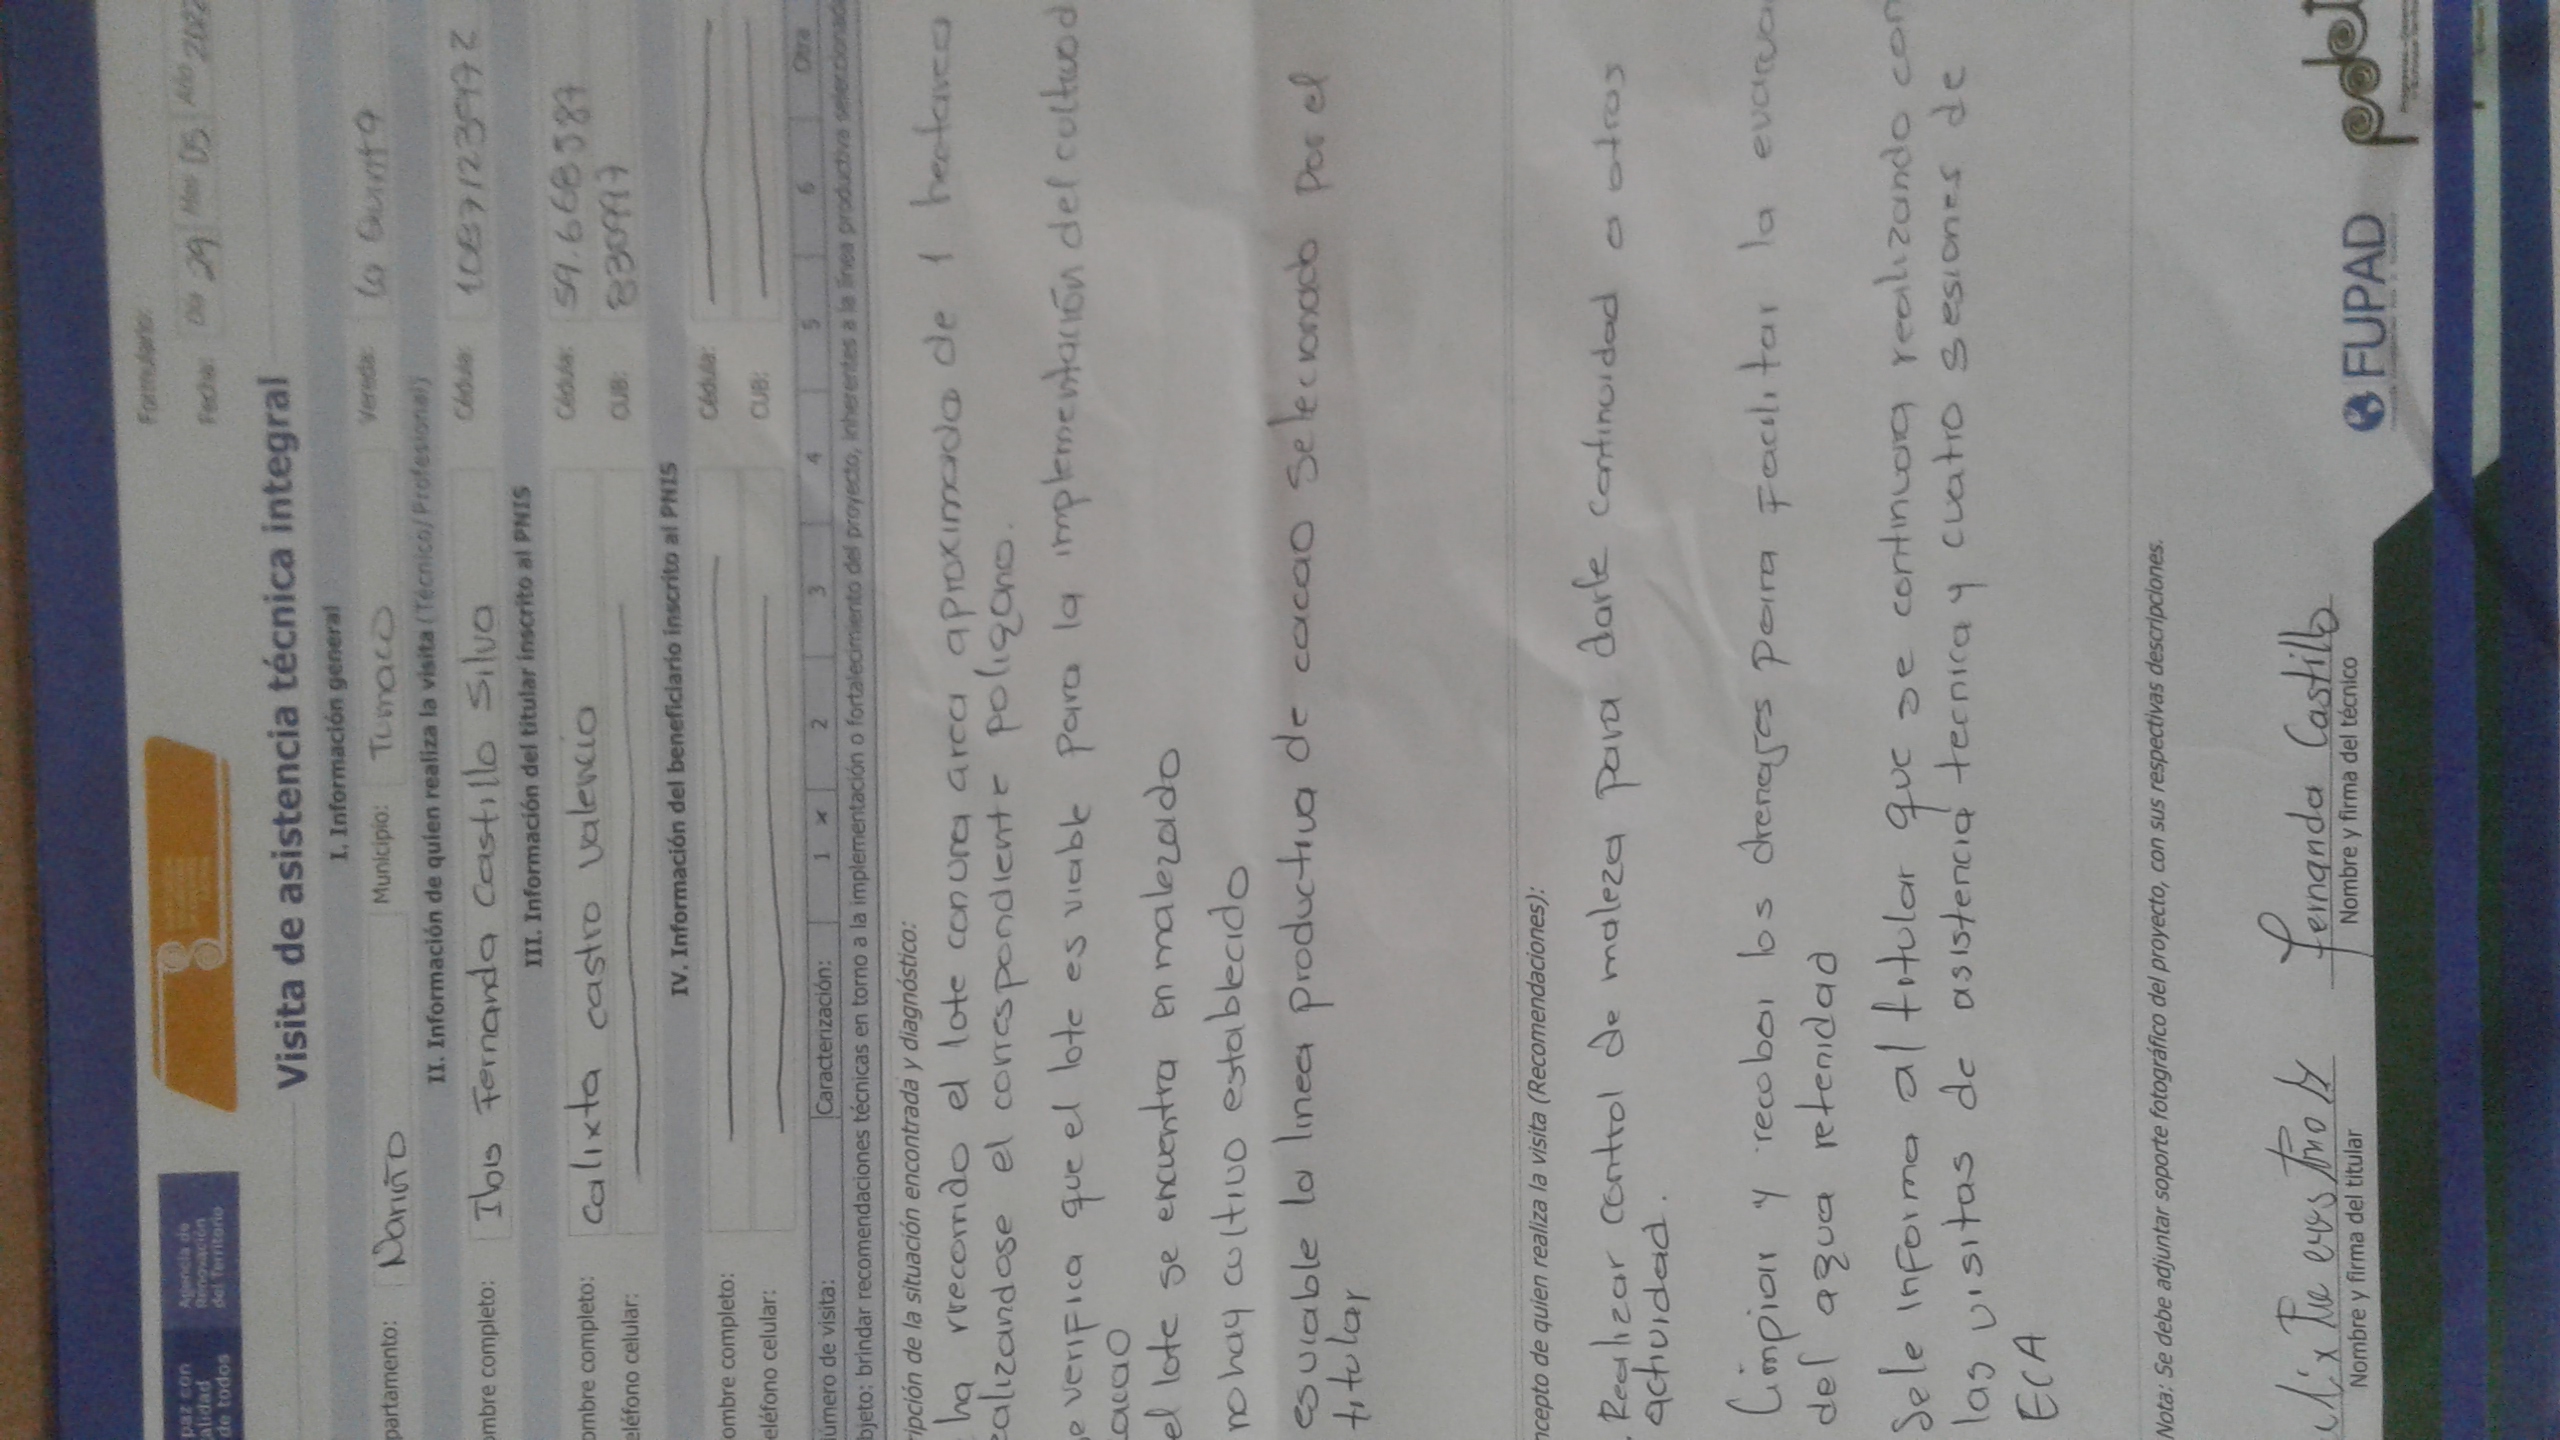 paz con
alidad
de todos
Agencia de
Renovación
del Territorio
Formulario:
Fecha: Día 29 Mes 05 Año 2022
Visita de asistencia técnica integral
I. Información general
partamento: Nariño Municipio: Tumaco Vereda: la
II. Información de quien realiza la visita (Técnico/Profesional)
ombre completo: Ibis Fernanda Castillo Silva Cédula:
III. Información del titular inscrito al PNIS
ombre completo: Calixta castro valencia Cédula: 59.668387
eléfono celular: CUB:
IV. Información del beneficiario inscrito al PNIS
ombre completo: Cédula:
eléfono celular: CUB:
úmero de visita: Caracterización: 1 x 2 3 4 5 6 Otra
bjeto: brindar recomendaciones técnicas en torno a la implementación o fortalecimiento del proyecto, inherentes a la línea productiva seleccionada
ripción de la situación encontrada y diagnóstico:
ha rrecorrido el lote con una area aproximada de 1 hectarea
ealizandose el correspondiente poligano.
e verifica que el lote es viable para la implementación del cultivo d
cacao
el lote se encuentra enmalezado
no hay cultivo establecido
es viable la linea productiva de cacao seleccionado por el
titular
ncepto de quien realiza la visita (Recomendaciones):
. Realizar control de maleza para darle continuidad a otras
actividad.
Limpiar y recabar los drenajes para facilitar la evacua
del agua retenidad
Se le informa al titular que se continuara realizando con
las visitas de asistencia tecnica y cuatro sesiones de
ECA
Nota: Se debe adjuntar soporte fotográfico del proyecto, con sus respectivas descripciones.
Fernanda Castillo
Nombre y firma del titular Nombre y firma del técnico
FUPAD pdet